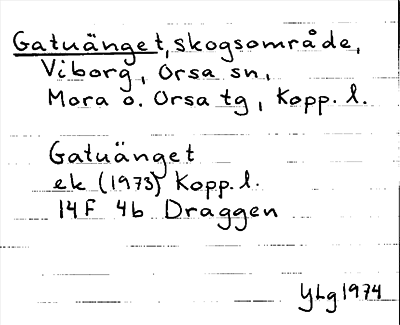 Gatuänget, skogsområde,
Viborg, Orsa sn,
Mora o. Orsa tg, Kopp. l.
Gatuänget
ek (1973) Kopp. l.
14F 4b Draggen
YLg 1974